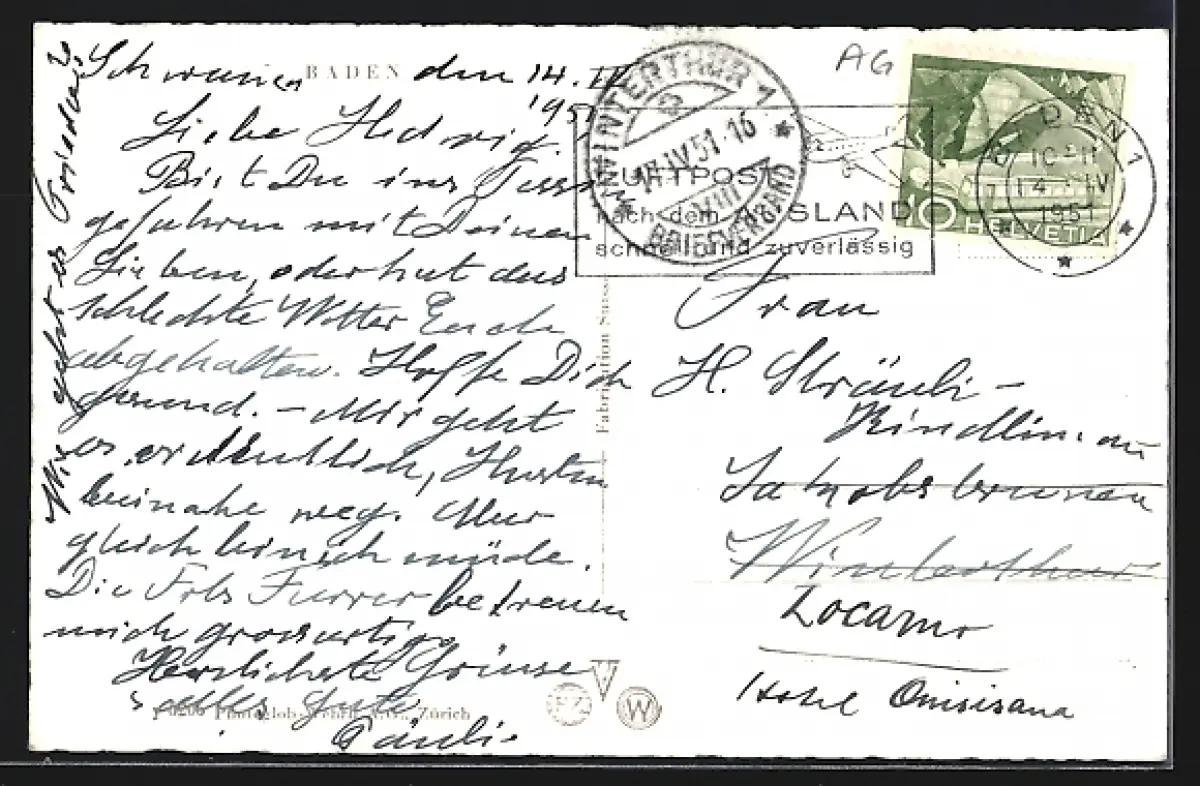 BADEN den 14. IV
1951
Liebe Hedwig.
Bist Du ins Tessin
gefahren mit Deinen
Lieben, oder hat das
schlechte Wetter Euch
abgehalten. Hoffe Dich
gesund. – Mir geht
es ordentlich, Husten
beinahe weg. Nur
gleich bin ich müde.
Die Frls Furrer betreuen
mich grossartig.
Herzlichste Grüsse
alles Gute
Päuli.
Wie geht es
Photoglob-Wehrli A.G., Zürich
Fabrication Suisse
PZ
W
AG
WINTERTHUR 1
15.IV.51-16
VIII
BRIEFVERSAND
LUFTPOST
nach dem AUSLAND
schnell und zuverlässig
10 HELVETIA
10-11
14. IV
1951
Frau
H. Sträuli-
Kindlimann
Jakobsbrunnen
Winterthur
Locarno
Hotel